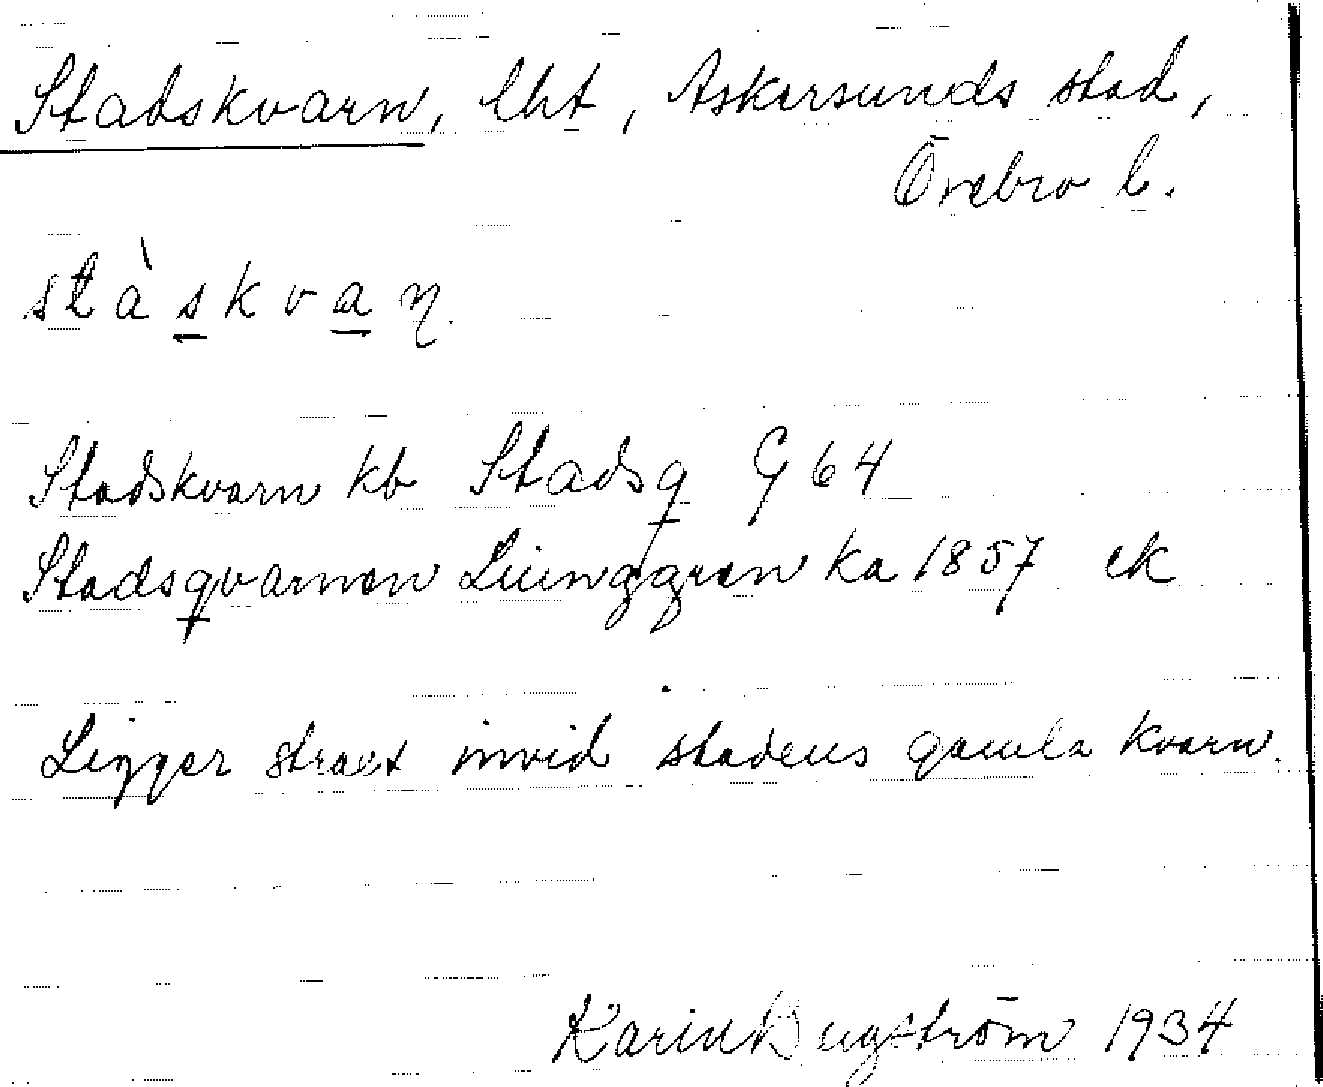 Stadskvarn, lht, Askersunds stad,
Örebro l.
stàskvaɳ.
Stadskvarn kb Stadsq G 64
Stadsqvarnen Liunggren ka 1857 ek
Ligger strax invid stadens gamla kvarn.
Karin Bugström 1934